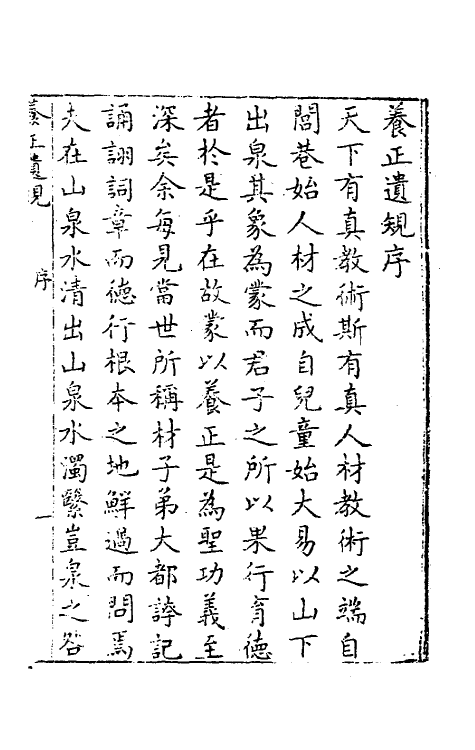 養正遺規序
天下有真教術斯有真人材教術之端自
閭巷始人材之成自兒童始大易以山下
出泉其象為蒙而君子之所以果行育德
者於是乎在故蒙以養正是為聖功義至
深矣余每見當世所稱材子弟大都誇記
誦詡詞章而德行根本之地鮮過而問焉
夫在山泉水清出山泉水濁繄豈泉之咎
養正遺規
序
一